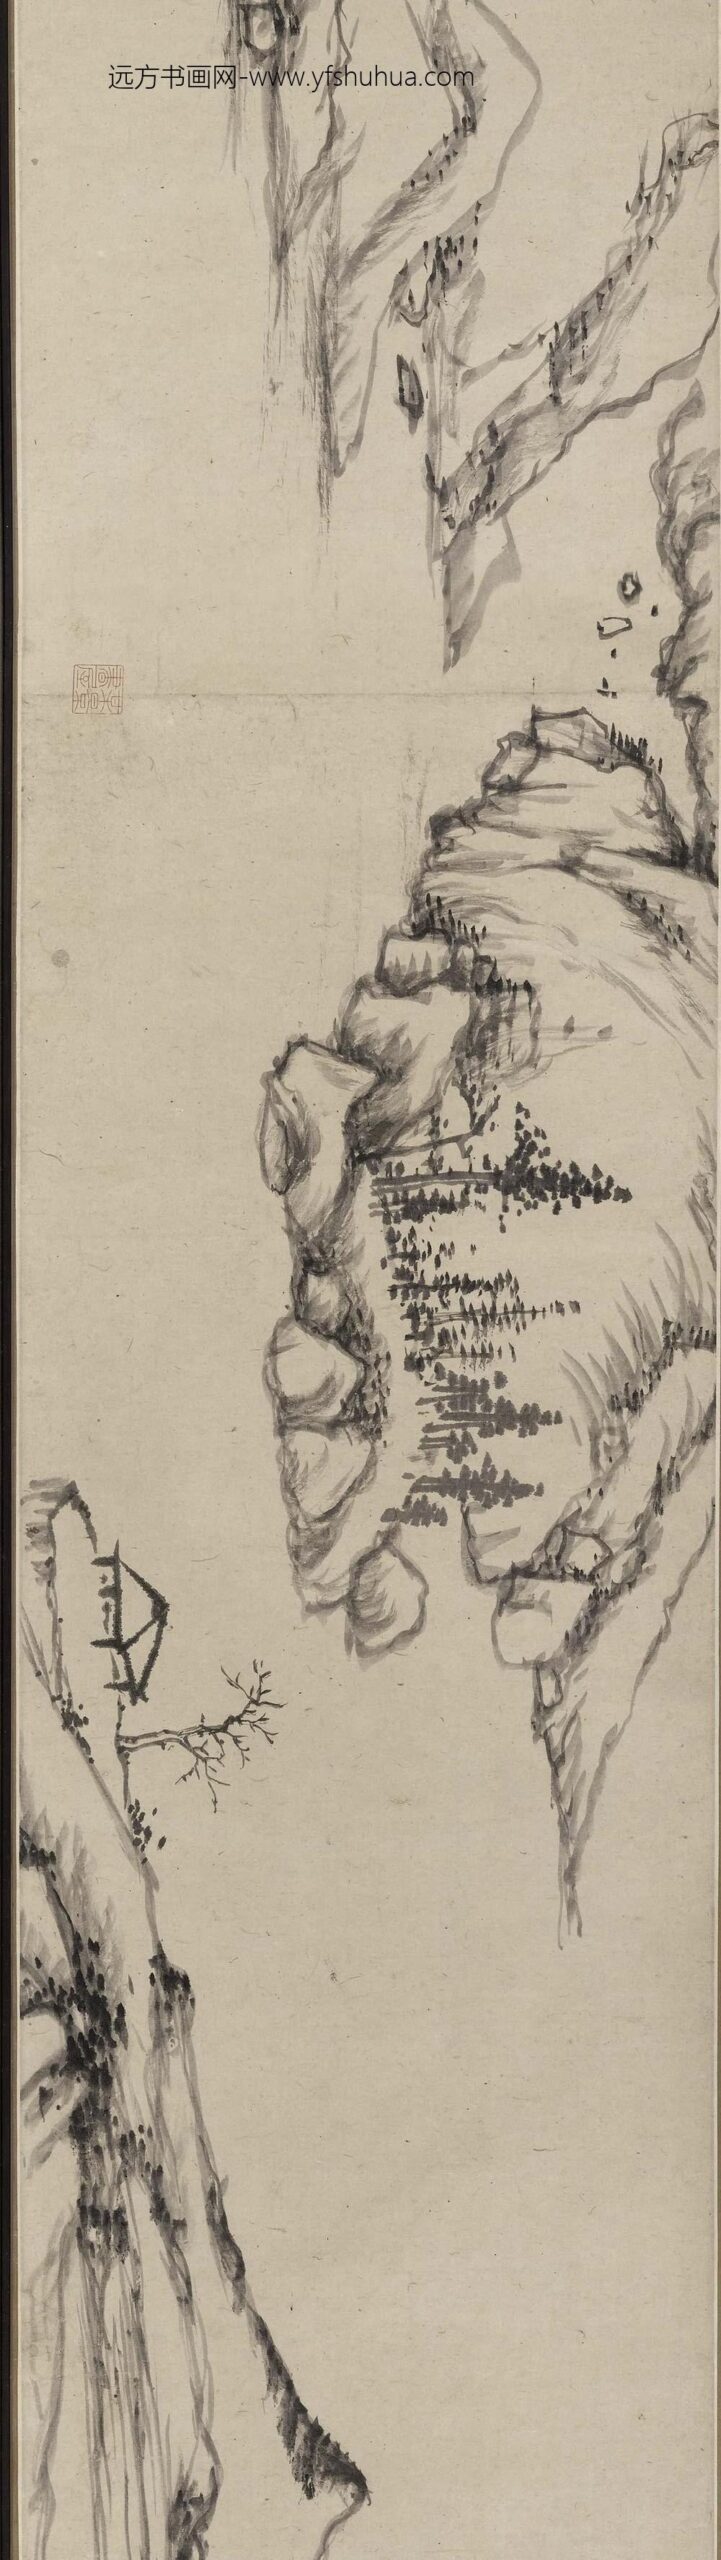 远方书画网-www.yfshuhua.com